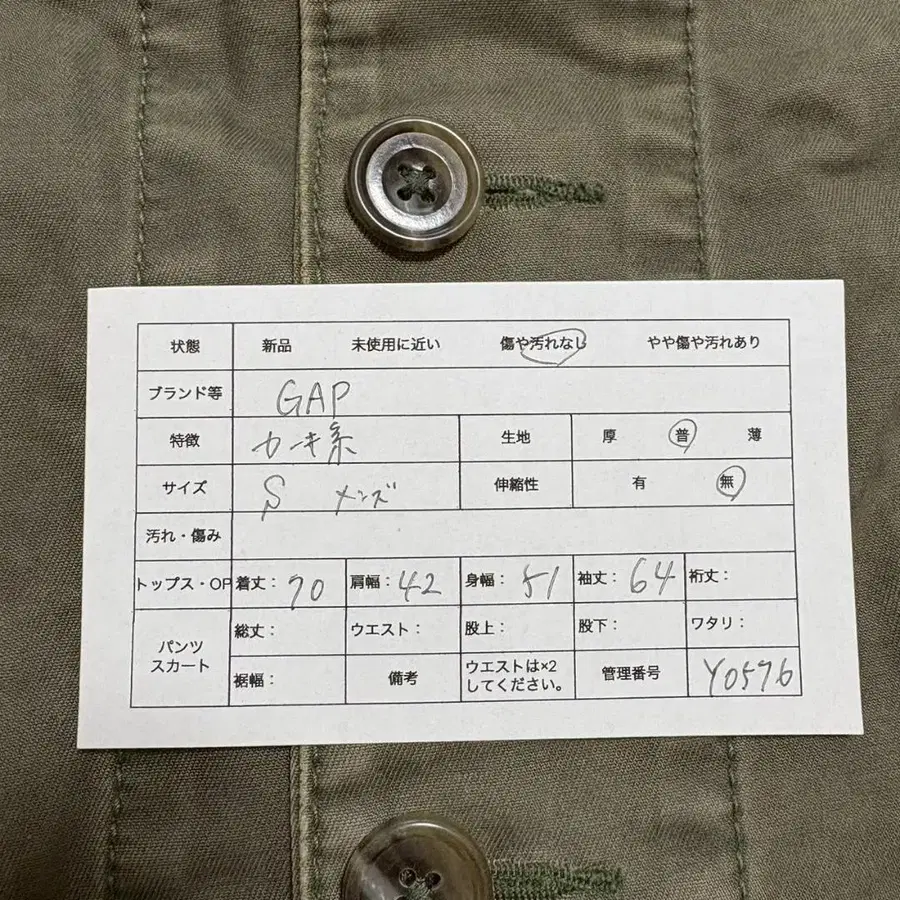 状態 新品 未使用に近い 傷や汚れなし やや傷や汚れあり
ブランド等 GAP
特徴 カーキ系 生地 厚 普 薄
サイズ S メンズ 伸縮性 有 無
汚れ・傷み
トップス・OP 着丈: 70 肩幅: 42 身幅: 51 袖丈: 64 裄丈:
パンツ スカート 総丈: ウエスト: 股上: 股下: ワタリ:
裾幅: 備考 ウエストは×2 してください。 管理番号 Y0576